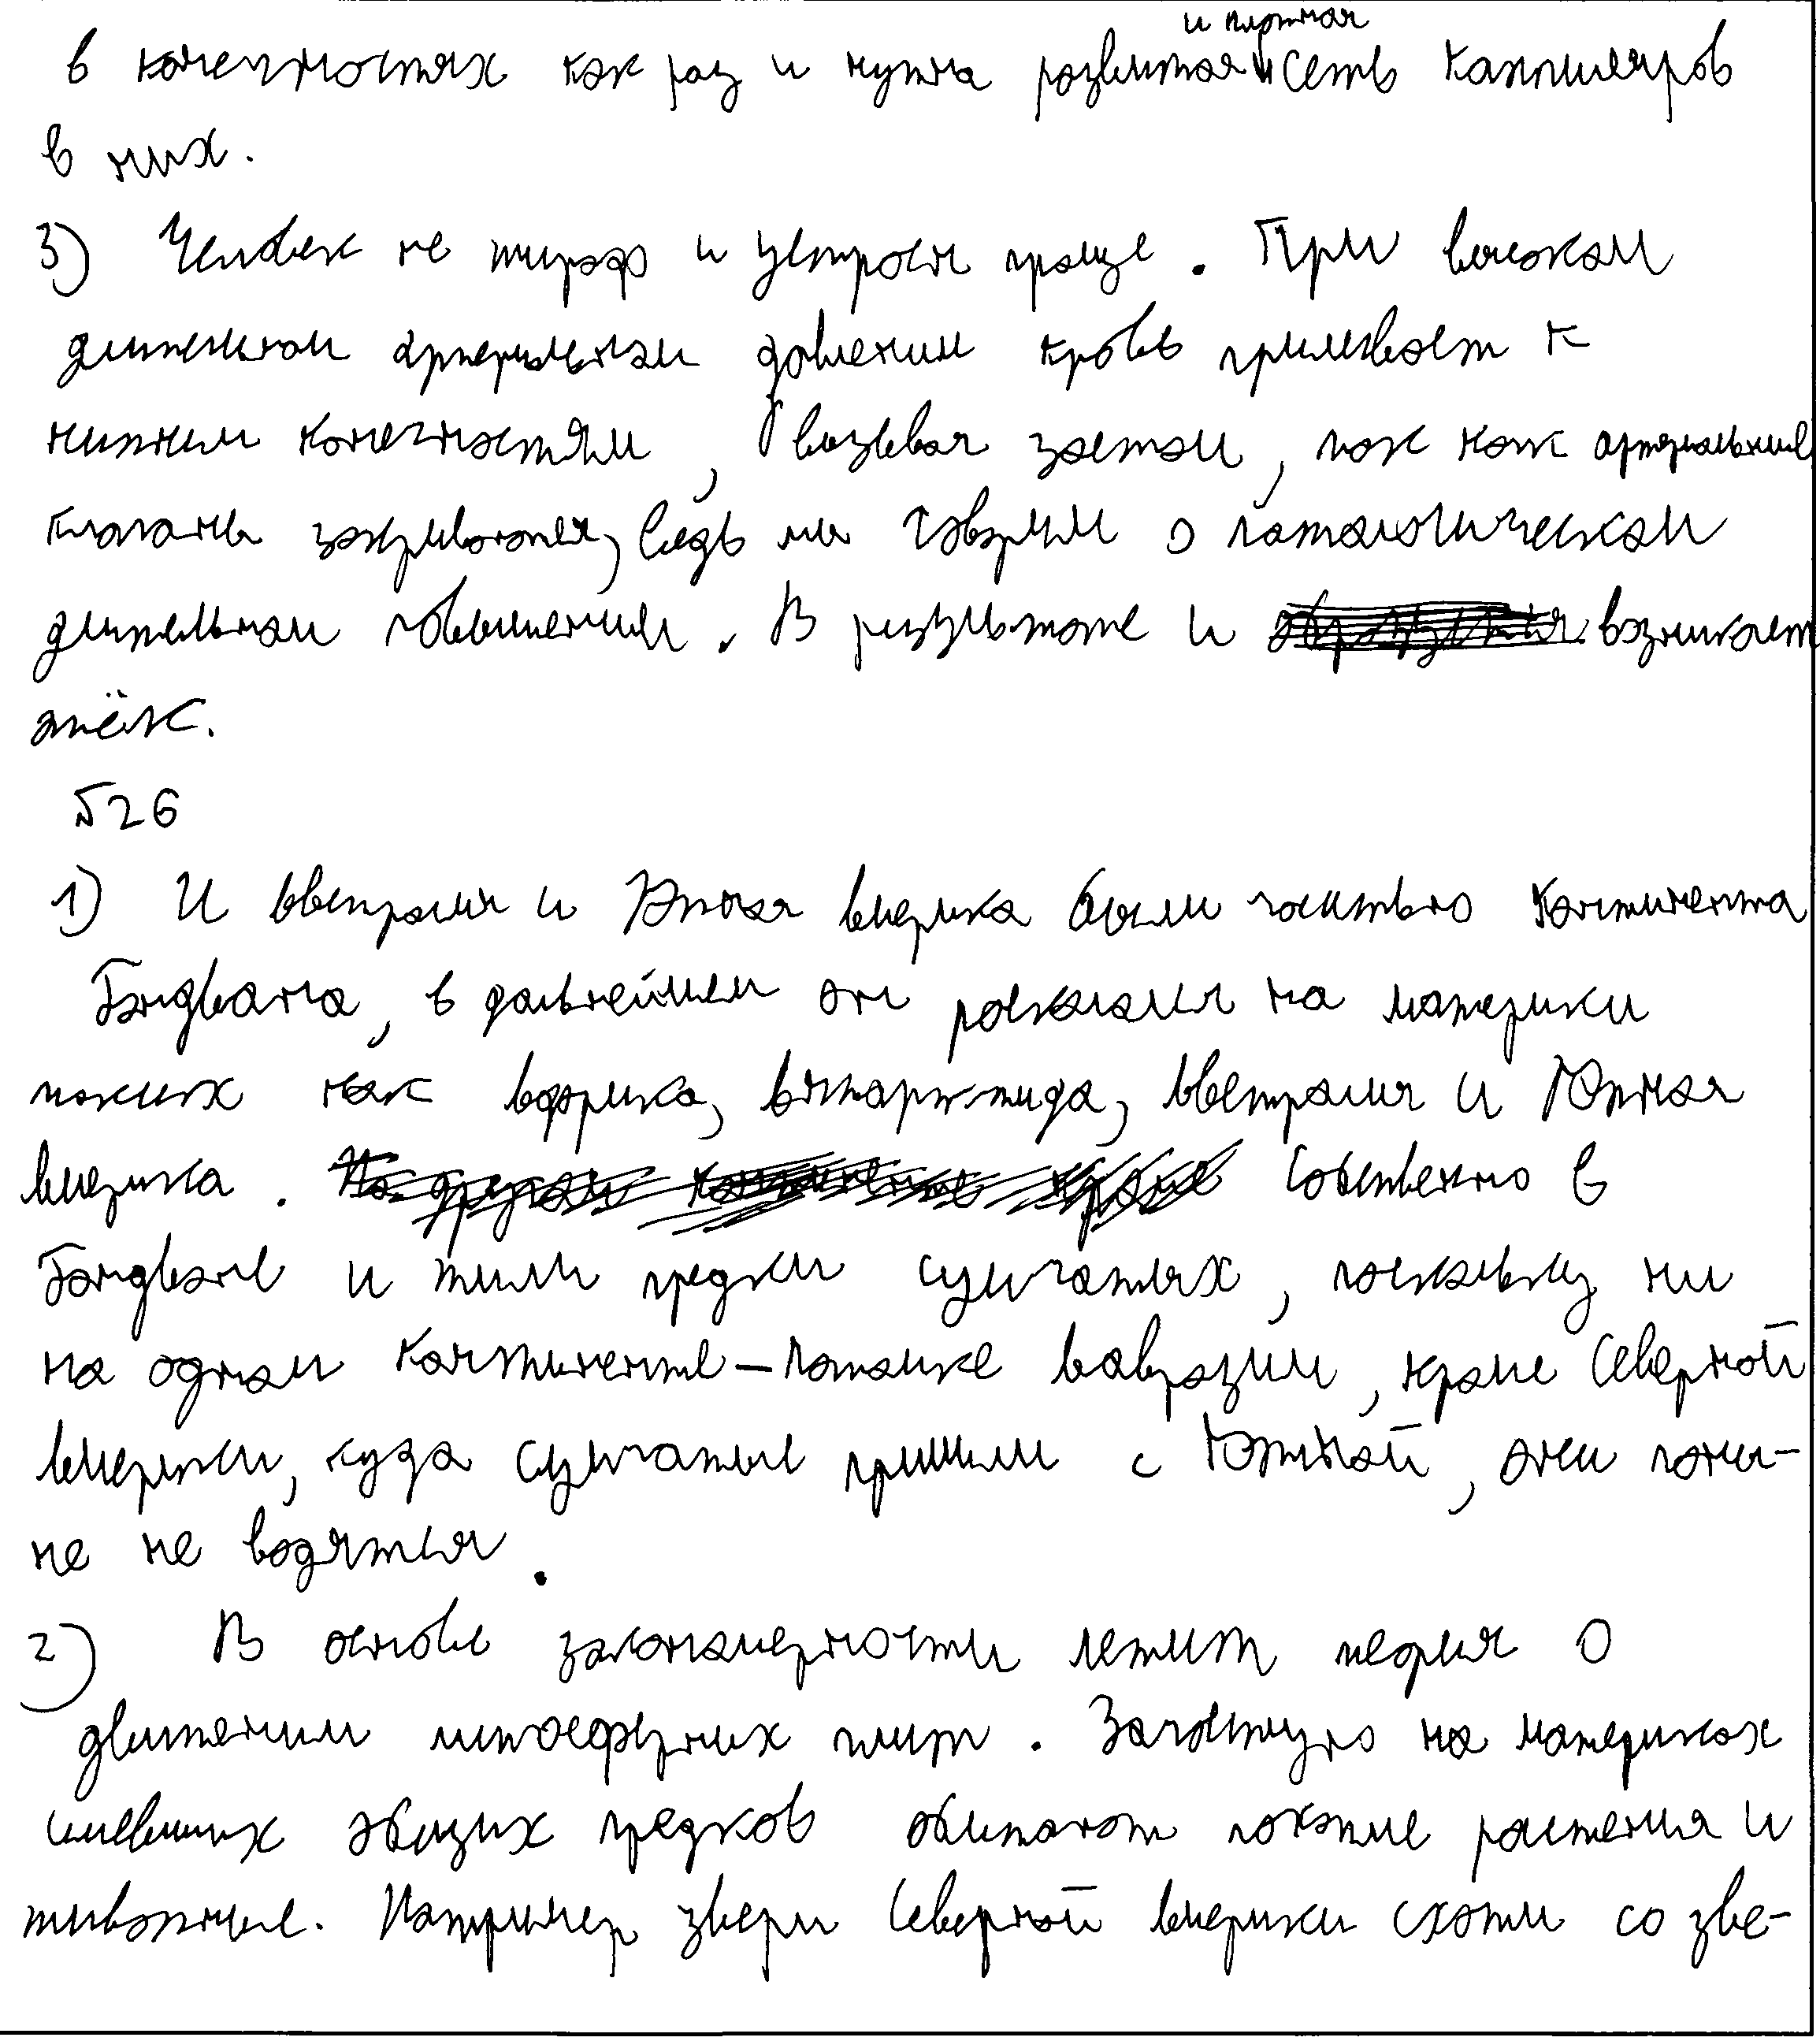 в конечностях как раз и нужна развитая и плотная сеть капилляров
в них.
3) Человек не жираф и устроен проще. При высоком
длительном артериальном давлении кровь приливает к
нижним конечностям, вызывая застои, так как артериальные
клапаны закрываются, ведь мы говорим о патологическом
длительном повышении. В результате и возникает
отёк.
№26
1) И Австралия и Южная Америка были частью континента
Гондвана, в дальнейшем он раскололся на материки
таких как Африка, Антарктида, Австралия и Южная
Америка. Собственно в
Гондване и жили предки сумчатых, поскольку ни
на одном континенте-потомке Лавразии, кроме Северной
Америки, куда сумчатые пришли с Южной, они поны-
не не водятся.
2) В основе закономерности лежит теория о
движении литосферных плит. Зачастую на материках
имевших общих предков обитают похожие растения и
животные. Например звери Северной Америки схожи со зве-